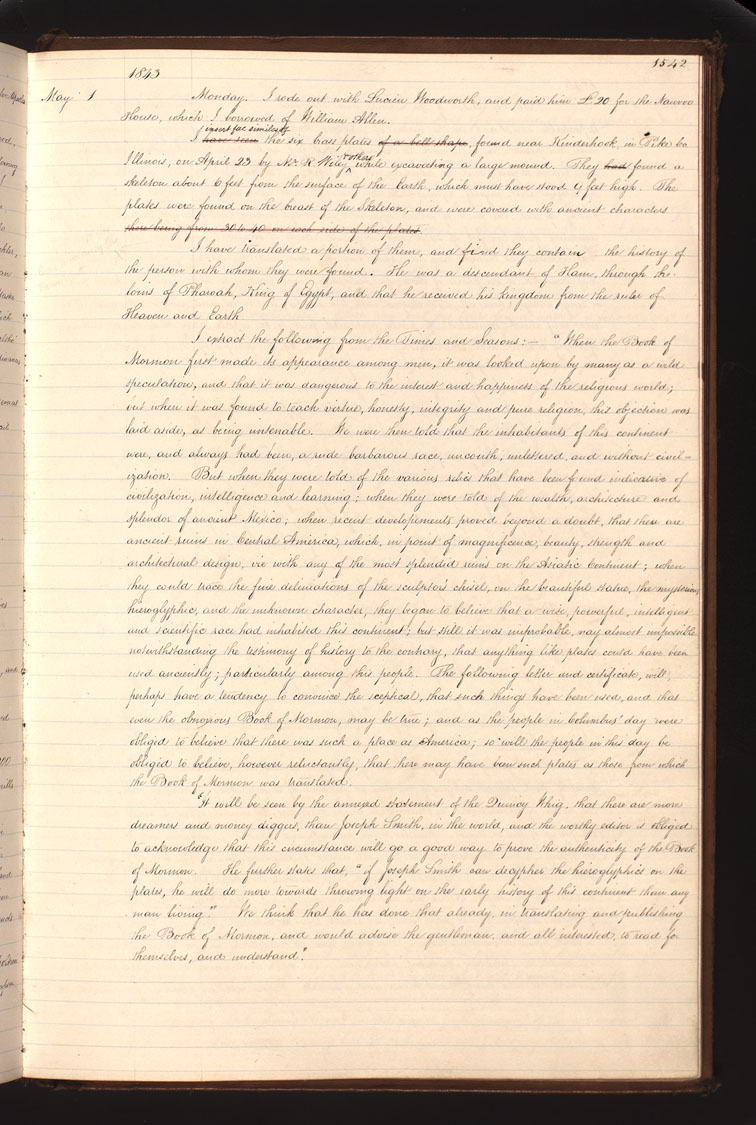 1542
1843
May 1 Monday. I rode out with Lucien Woodworth, and paid him £20 for the Nauvoo
House, which I borrowed of William Allen.
insert fac similes of
I have seen the six brass plates of a bell shape, found near Kinderhook, in Pike Co
& others
Illinois, on April 23 by Mr. R. Wiley, while excavating a large mound. They had found a
skeleton about 6 feet from the surface of the Earth, which must have stood 9 feet high. The
plates were found on the breast of the Skeleton, and were covered with ancient characters
there being from 30 to 40 on each side of the plates.
I have translated a portion of them, and find they contain the history of
the person with whom they were found. He was a descendant of Ham, through the
loins of Pharoah, King of Egypt, and that he received his kingdom from the ruler of
Heaven and Earth
I extract the following from the Times and Seasons:— "When the Book of
Mormon first made its appearance among men, it was looked upon by many as a wild
speculation, and that it was dangerous to the interest and happiness of the religious world;
but when it was found to teach virtue, honesty, integrity and pure religion, this objection was
laid aside, as being untenable. We were then told that the inhabitants of this continent
were, and always had been, a rude barbarous race, uncouth, unlettered, and without civil-
ization. But when they were told of the various relics that have been found indicative of
civilization, intelligence and learning; when they were told of the wealth, architecture and
splendor of ancient Mexico; when recent developements proved beyond a doubt, that there are
ancient ruins in Central America, which, in point of magnificence, beauty, strength and
architectural design, vie with any of the most splendid ruins on the Asiatic Continent; when
they could trace the fine deliniations of the sculptor's chisel, on the beautiful statue, the mysterious
hieroglyphic, and the unknown character, they began to believe that a wise, powerful, intelligent
and scientific race had inhabited this continent; but still it was improbable, nay almost impossible
notwithstanding the testimony of history to the contrary, that anything like plates could have been
used anciently; particularly among this people. The following letter and certificate, will,
perhaps have a tendency to convince the sceptical, that such things have been used, and that
even the obnoxious Book of Mormon, may be true; and as the people in Columbus' day were
obliged to believe that there was such a place as America; so will the people in this day be
obliged to believe, however reluctantly, that there may have been such plates as those from which
the Book of Mormon was translated.
"It will be seen by the annexed statement of the Quincy Whig, that there are more
dreamers and money diggers, than Joseph Smith, in the world, and the worthy editor is obliged
to acknowledge that this circumstance will go a good way to prove the authenticity of the Book
of Mormon. He further states that, "if Joseph Smith can decypher the hieroglyphics on the
plates, he will do more towards throwing light on the early history of this continent than any
man living." We think that he has done that already, in translating and publishing
the Book of Mormon, and would advise the gentleman, and all interested, to read for
themselves, and understand."